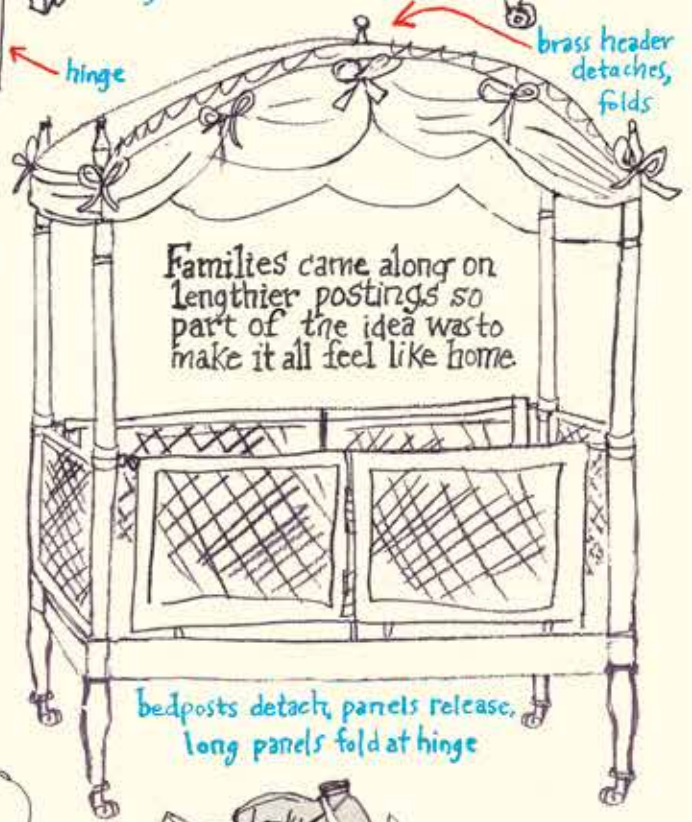 hinge
brass header
detaches,
folds
Families came along on
lengthier postings so
part of the idea was to
make it all feel like home
bedposts detach, panels release,
long panels fold at hinge